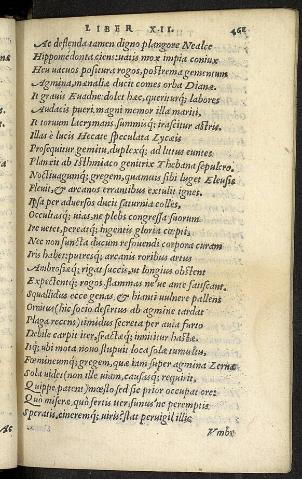 LIBER XII. 468
Ac deflenda tamen digno plangore Nealce
Hippomedonta ciens: uatis mox impia coniux
Heu uacuos positura rogos, postrema gementum
Agmina, mænaliæ ducit comes orba Dianæ.
It grauis Euadne: dolet hæc, queriturq; labores
Audacis pueri, magni memor illa mariti.
It toruum lacrymans, summisq; irascitur astris.
Illas è lucis Hecate speculata Lycæis
Prosequitur gemitu, duplexq; ad litus euntes
Planxit ab Isthmiaco genitrix Thebana sepulcro.
Noctiuagumq; gregem, quamuis sibi luget Eleusis
Fleuit, & arcanos errantibus extulit ignes.
Ipsa per aduersos ducit saturnia colles,
Occultasq; uias, ne plebs congressa suorum
Ire uetet, pereatq; ingentis gloria cœpti.
Nec non functa ducum refouendi corpora curam
Iris habet: putresq; arcanis roribus artus
Ambrosiæq; rigat succis, ut longius obstent
Expectentq; rogos, flammas ne'ue ante fatiscant.
Squallidus ecce genas, & hianti uulnere pallens
Ornitus (hic socio desertus ab agmine tardat
Plaga recens) timidus secreta per auia furto
Debile carpit iter, fractæq; innititur hastæ.
Isq; ubi mota nouo stupuit loca sola tumultu,
Fœmineumq; gregem, quæ iam super agmina Lernæ
Sola uidet (non ille uiam, causasq; requirit,
Quippe patent) mœsto sed sic prior occupat ore:
Quò miseræ, quò fertis iter, funus'ne peremptis
Speratis, cineremq; uiris? stat peruigil illic
Vmbr